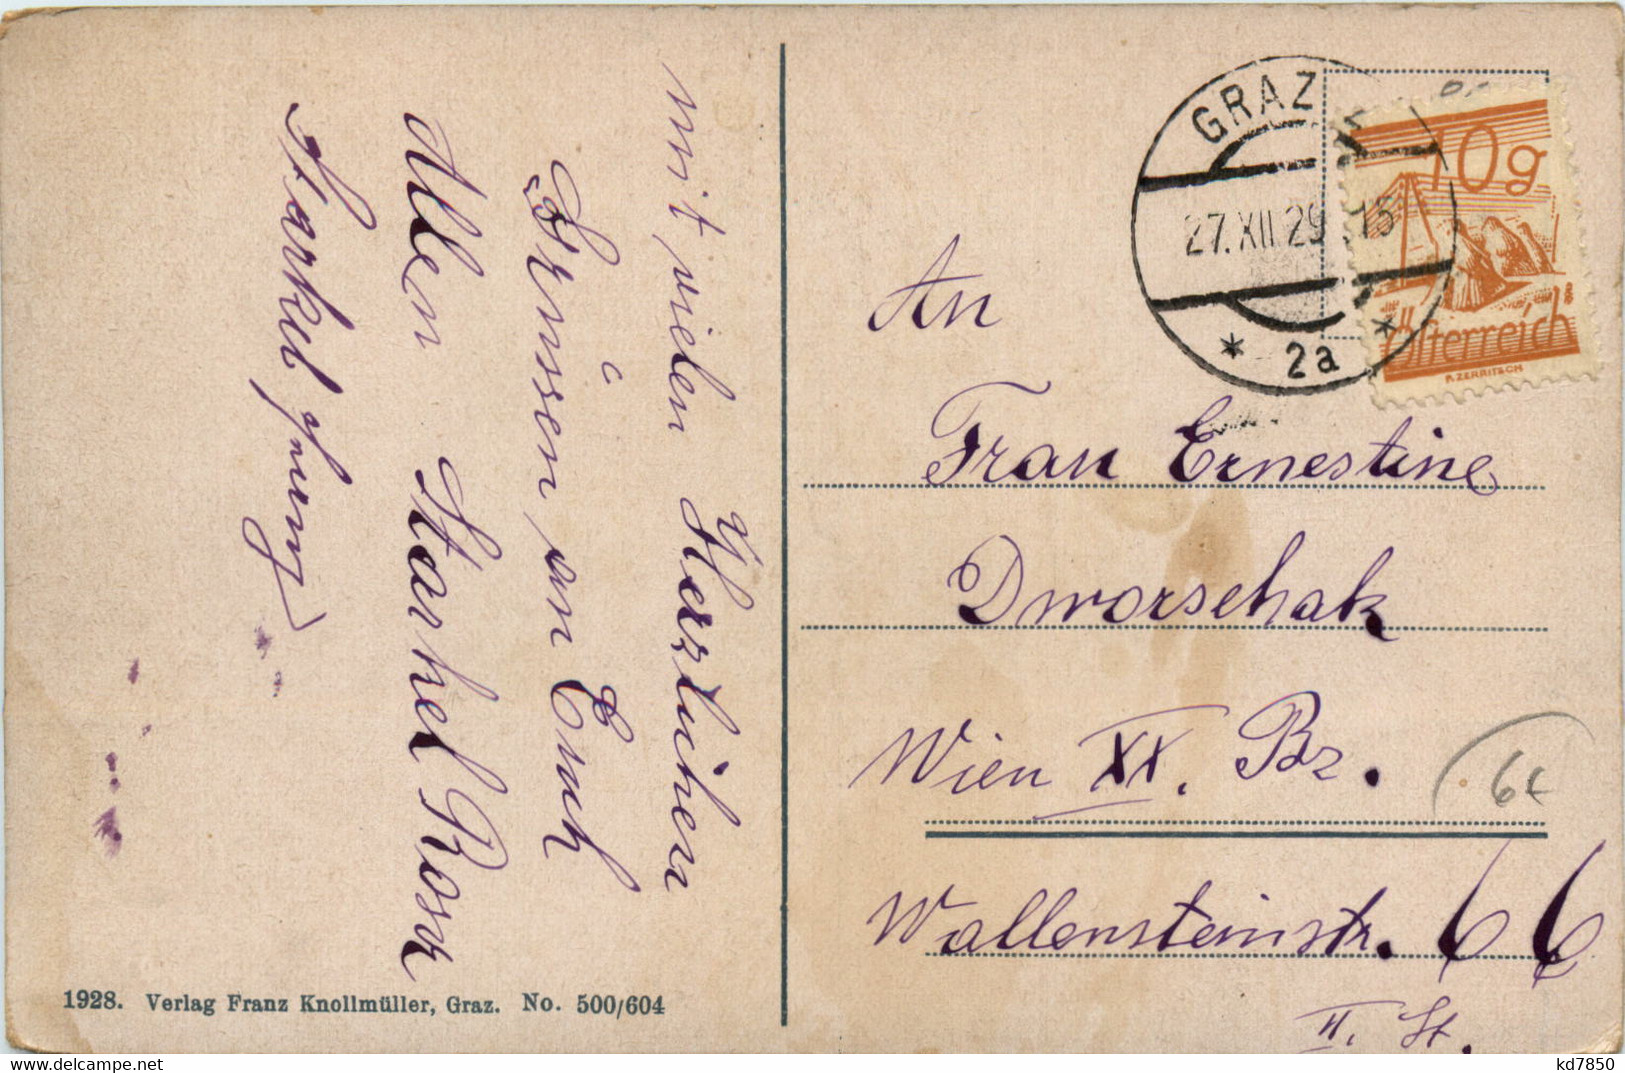 mit vielen Herzlichen
Grüssen an Euch
Allen Starkel Rosa
Starkel
GRAZ
27.XII.29 15
* 2a *
10g
Österreich
P.ZERRITSCH
An
Frau Ernestine
Dworschak
Wien XX. Bz.
Wallensteinstr. 66
II. St.
6€
1928. Verlag Franz Knollmüller, Graz. No. 500/604
kd7850